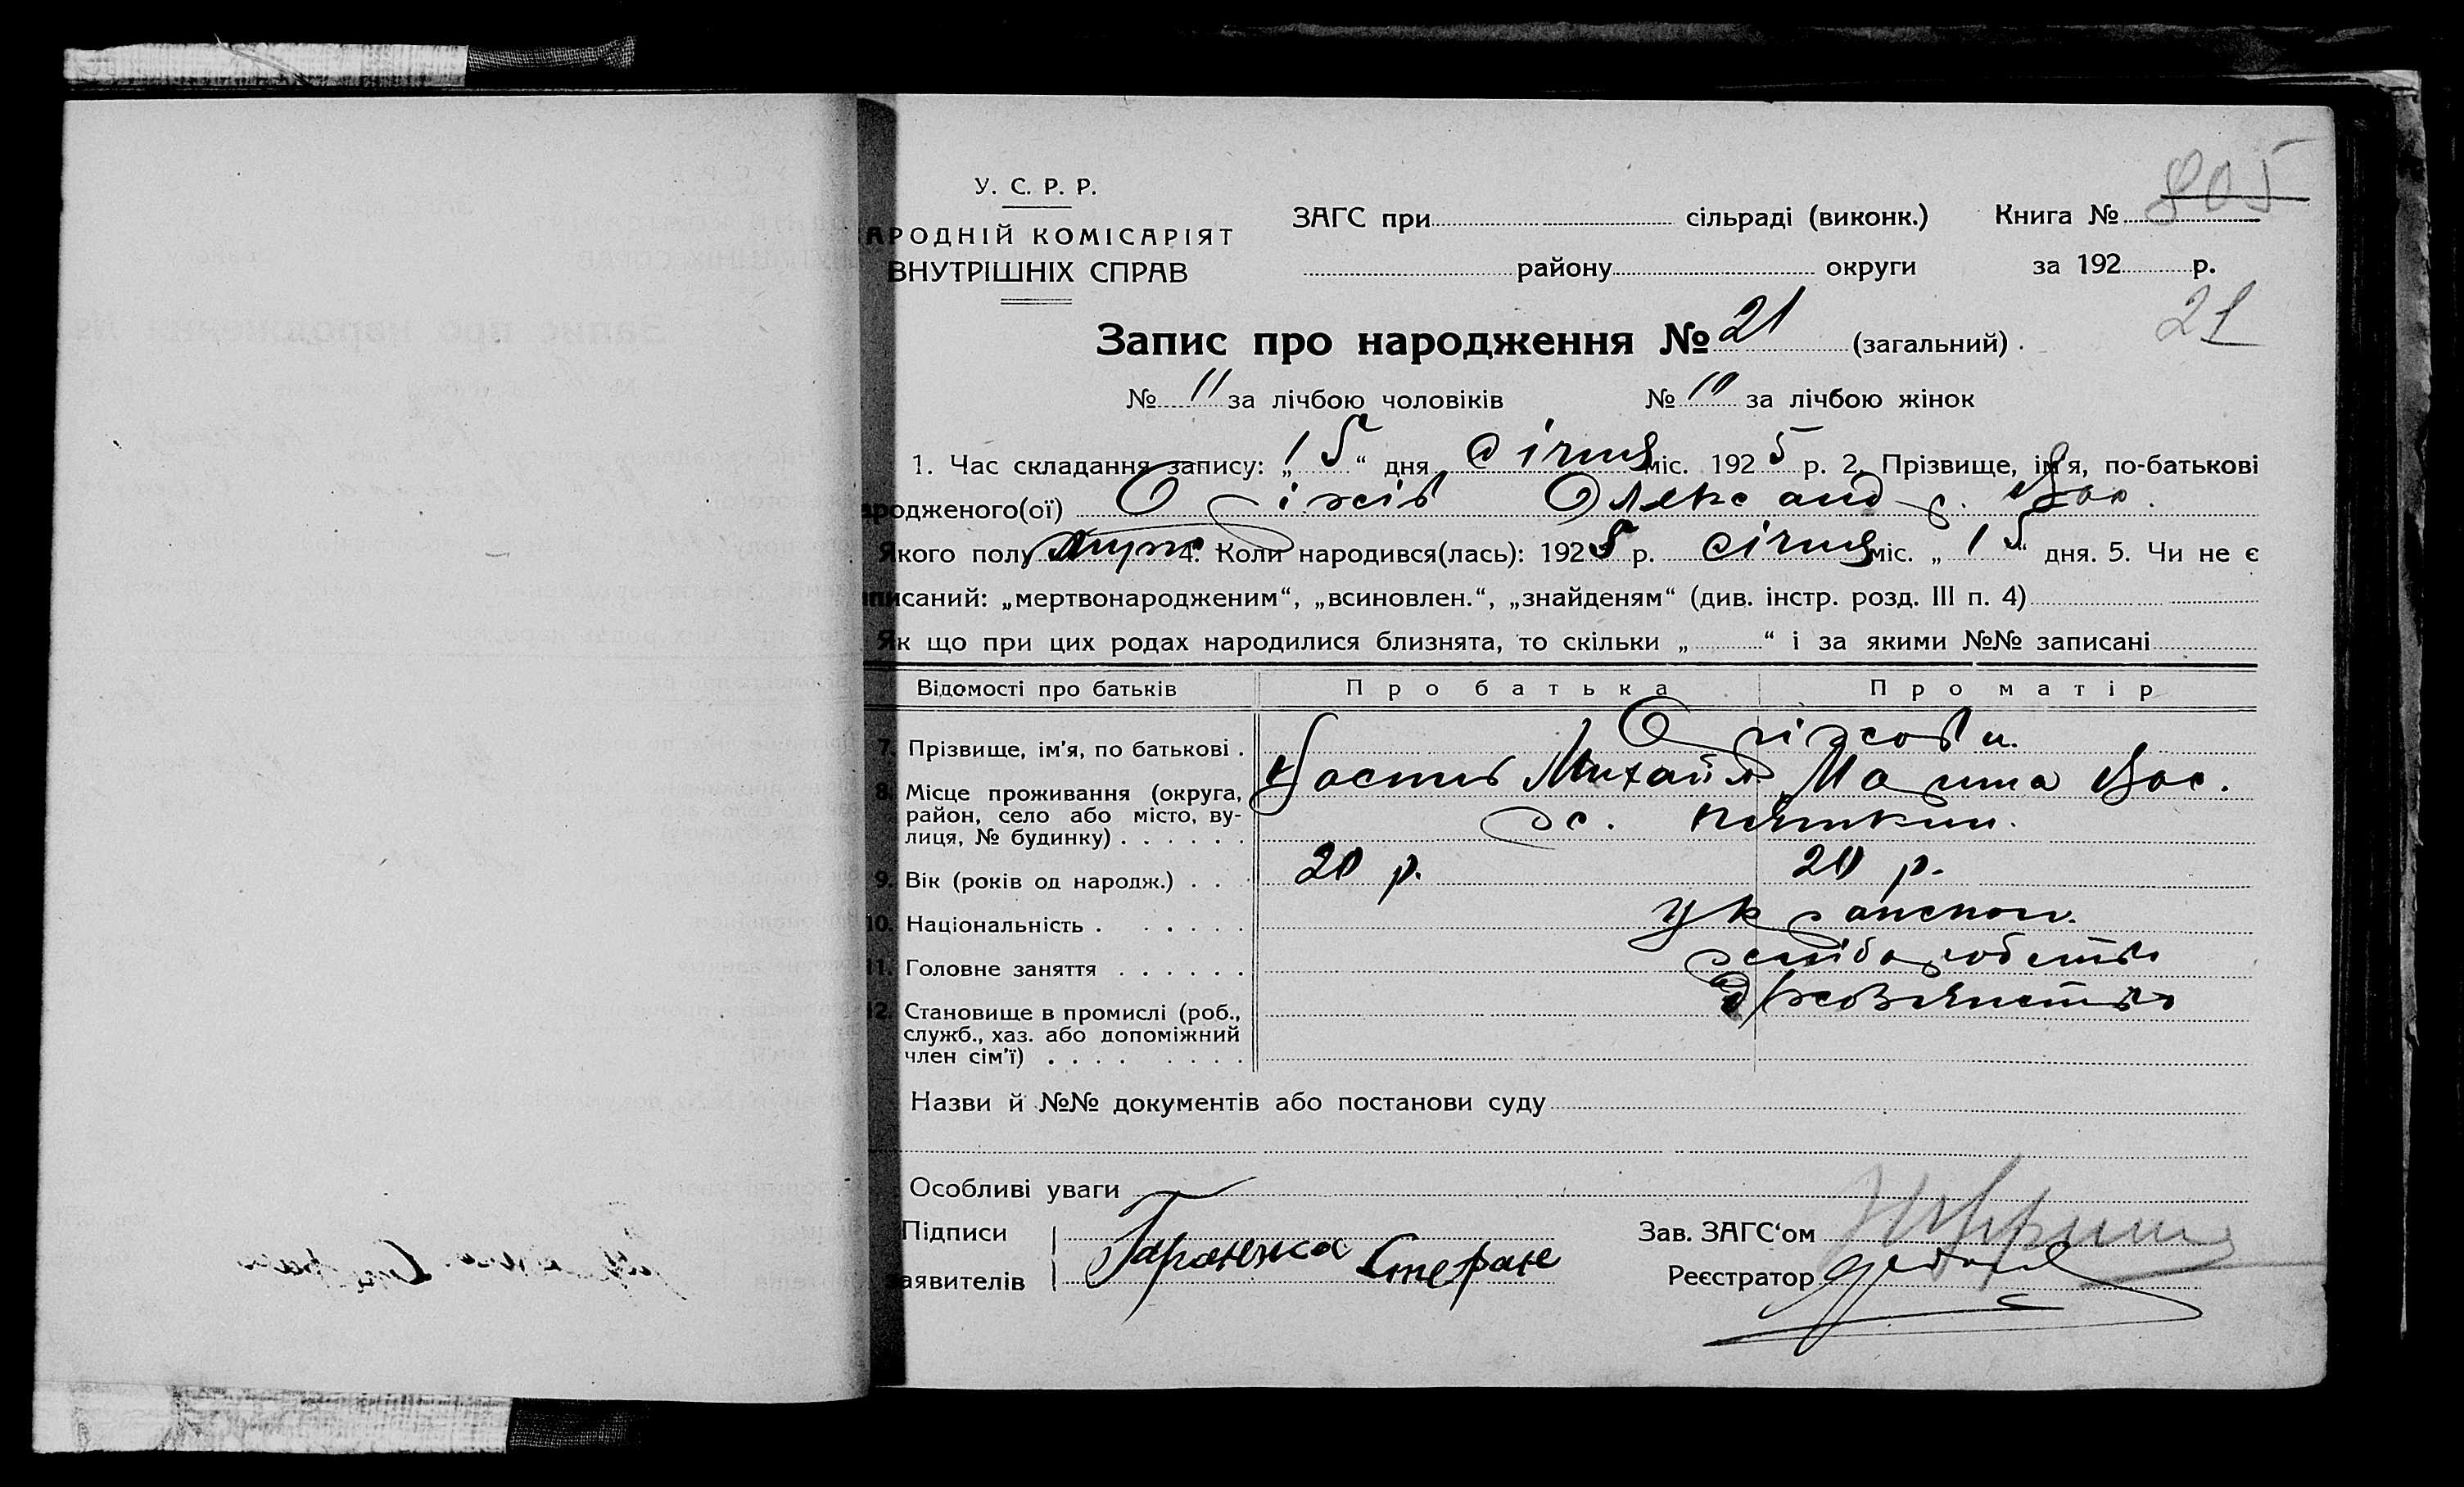 805
У. С. Р. Р.
АРОДНІЙ КОМІСАРІЯТ
ВНУТРІШНІХ СПРАВ
ЗАГС при сільраді (виконк.) Книга №
району округи за 192 р.
21
Запис про народження № 21 (загальний).
№ 11 за лічбою чоловіків № 10 за лічбою жінок
1. Час складання запису: „15“ дня січня міс. 1925 р. 2. Прізвище, ім'я, по-батькові
ародженого(ої) Олександ Вас.
Якого полу муж 4. Коли народився(лась): 1925 р. січня міс. „15“ дня. 5. Чи не є
писаний: „мертвонародженим“, „всиновлен.“, „знайденям“ (див. інстр. розд. III п. 4)
Як що при цих родах народилися близнята, то скільки „ “ і за якими №№ записані
Відомості про батьків Про батька Про матір
7. Прізвище, ім'я, по батькові .
Михайл Вас.
8. Місце проживання (округа,
район, село або місто, ву-
лиця, № будинку) . . . . . .
9. Вік (років од народж.) . . 20 р. 20 р.
10. Національність . . . . . .
11. Головне заняття . . . . . .
12. Становище в промислі (роб.,
служб., хаз. або допоміжний
член сім'ї) . . . . . . . .
Назви й №№ документів або постанови суду
Особливі уваги
Підписи
аявителів
Таранчка Стефан
Зав. ЗАГС‘ом
Реєстратор